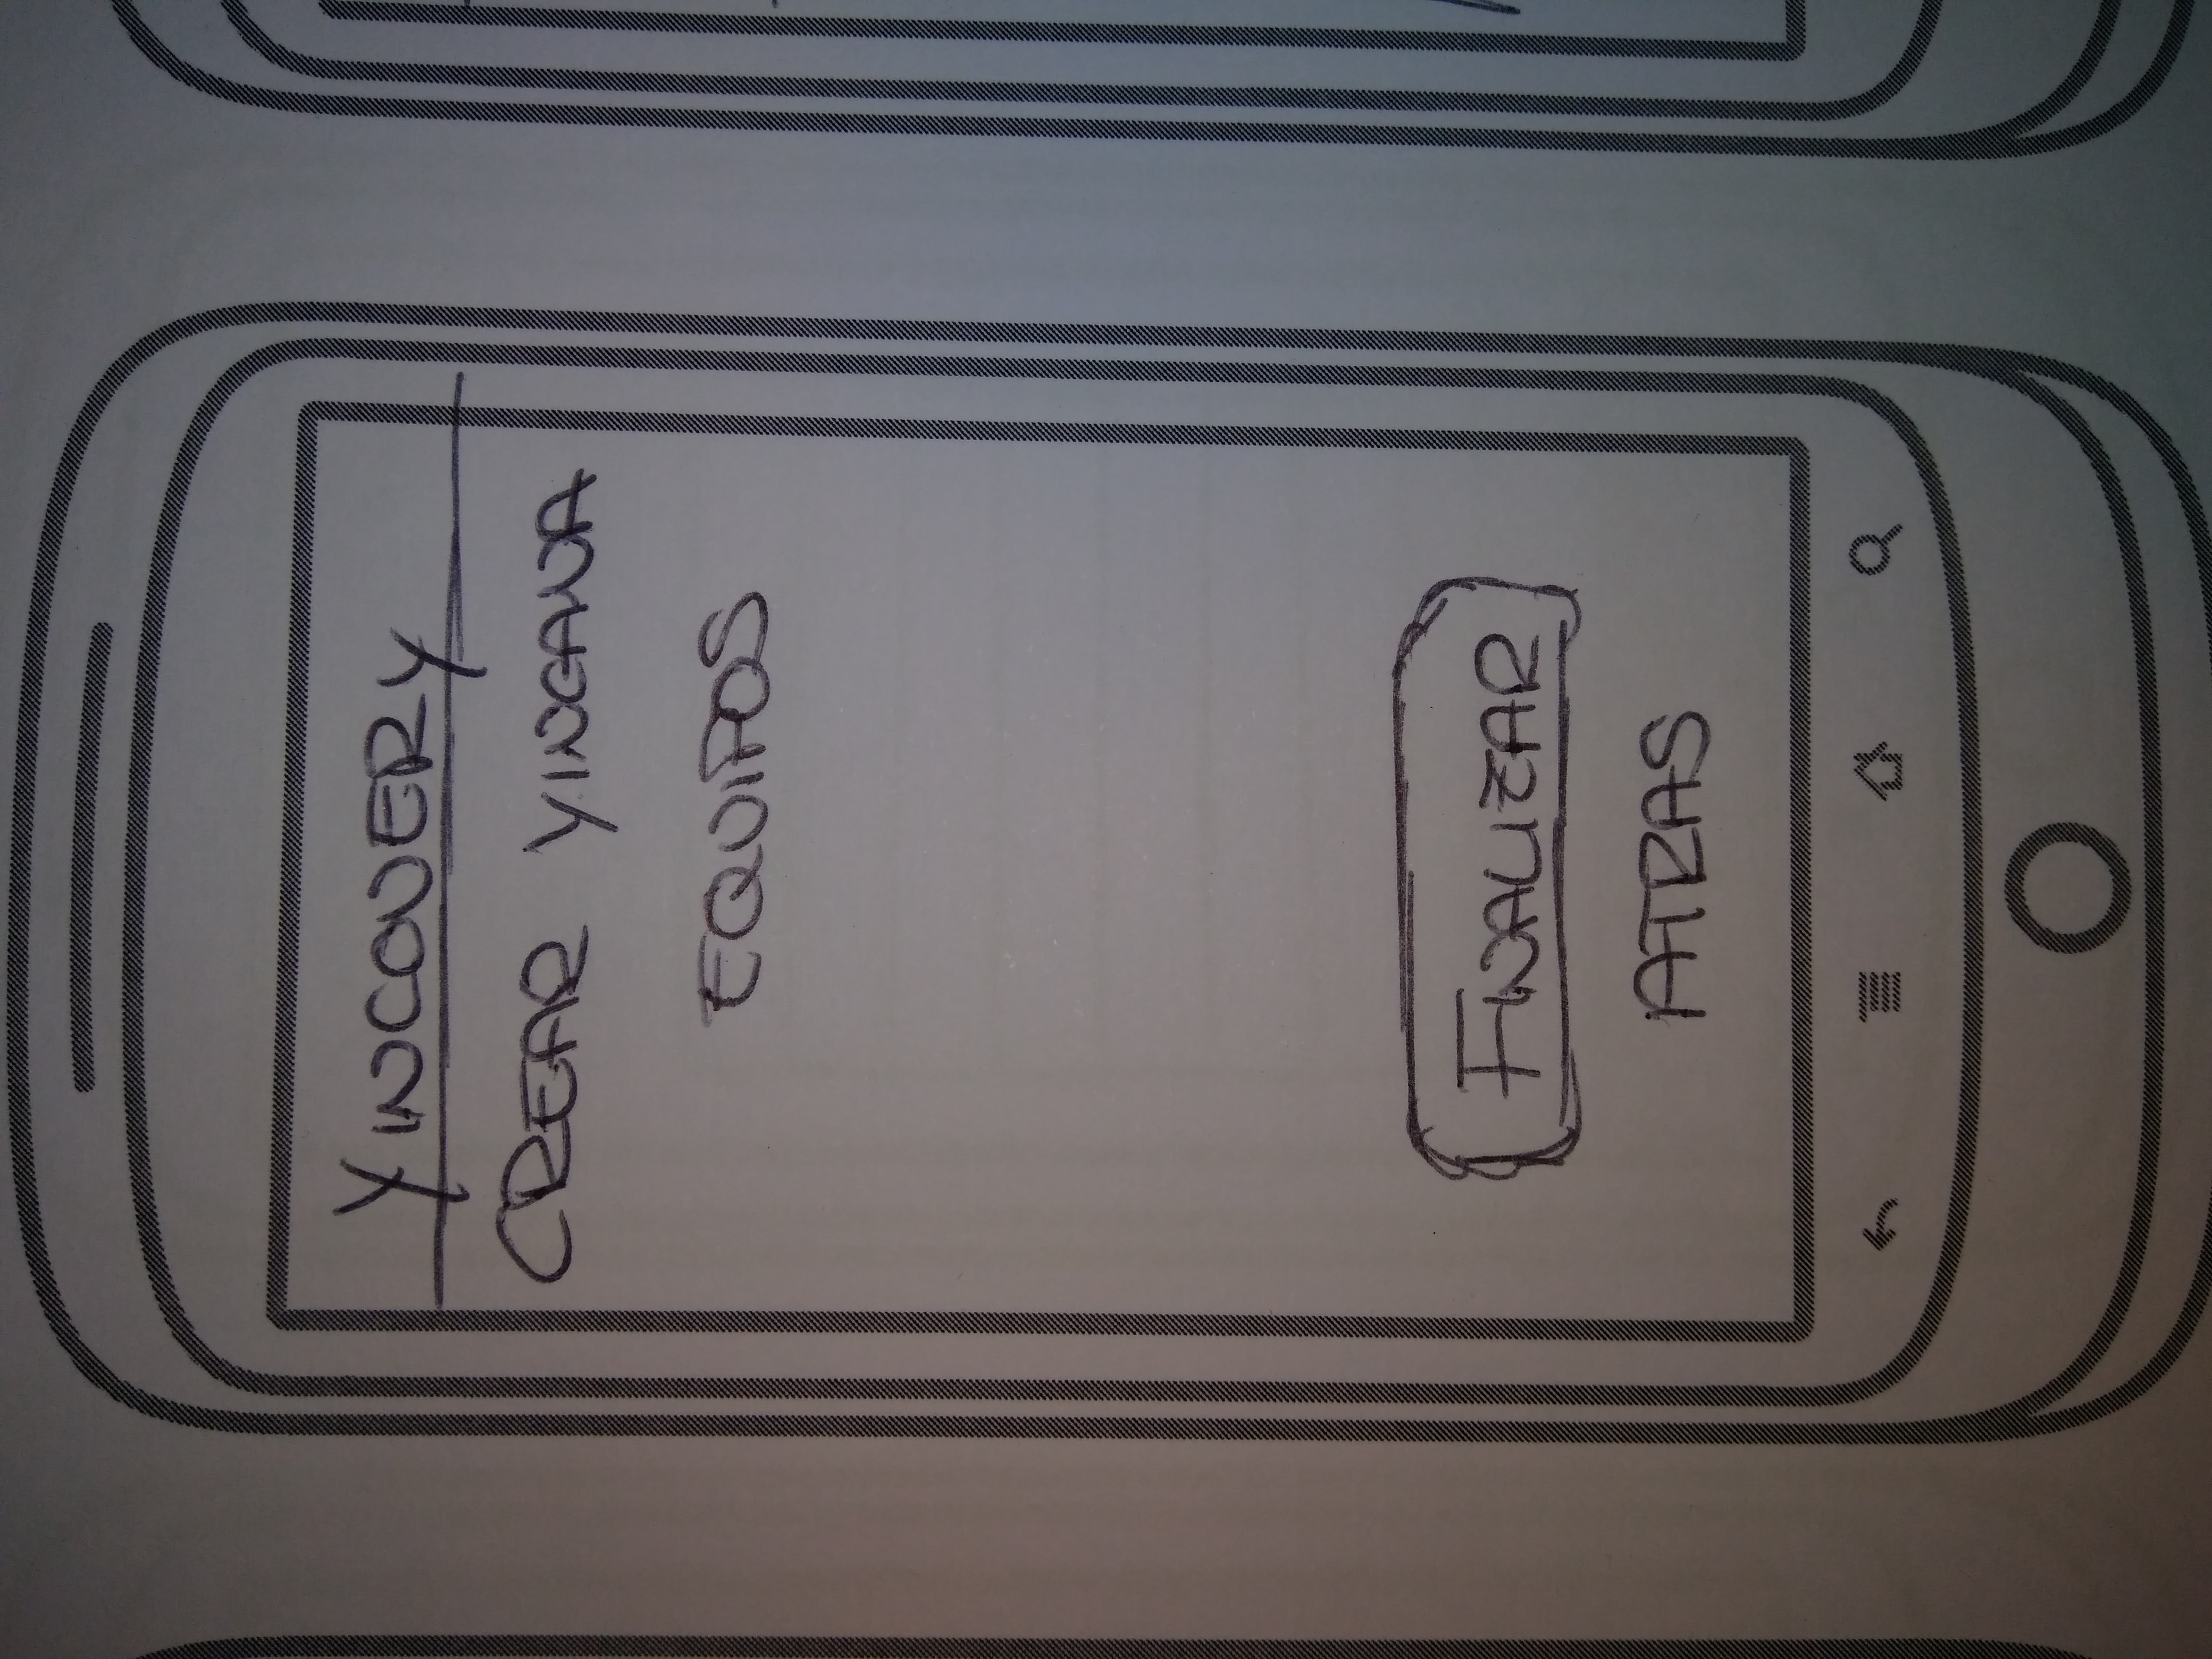 YINCOVERY
CREAR YINCANA
EQUIPOS
FINALIZAR
ATRAS